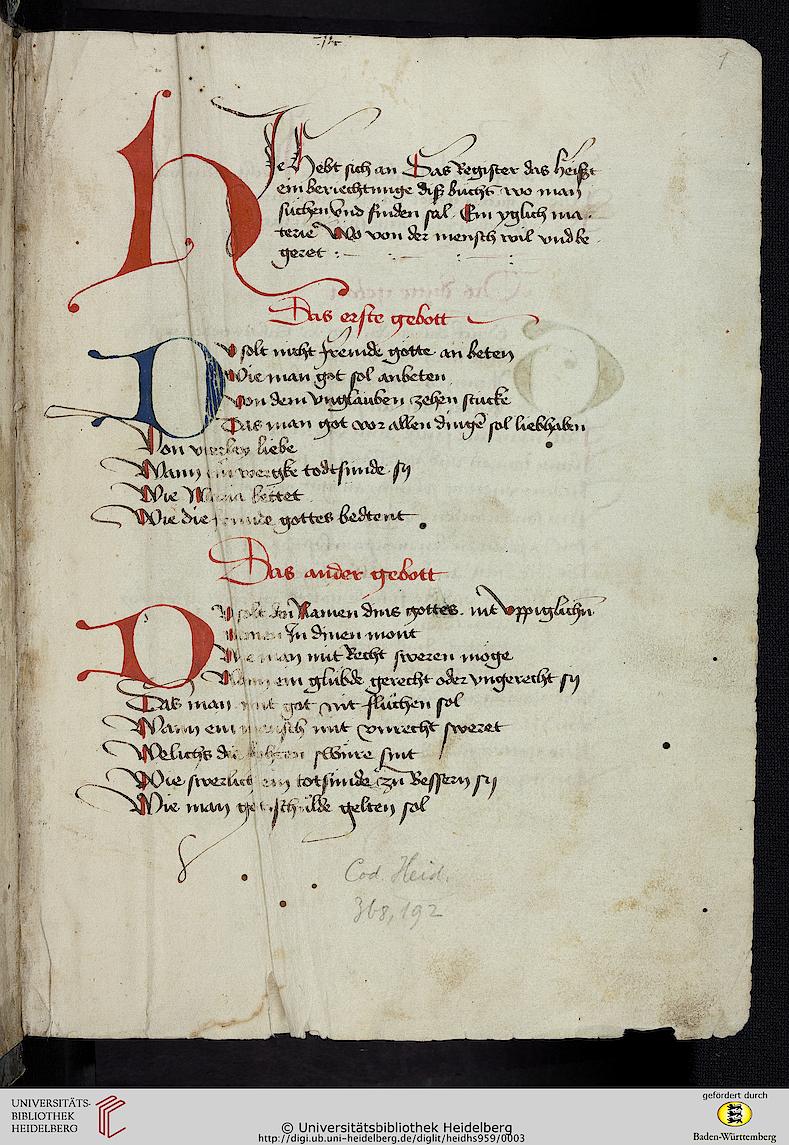 14
1
HJe Hebt sich an Das Register das heisst
ein beriechtunge diß buchs wo man
suchen vnd finden sol Ein yglich ma
terie Wo von der mensch wil vnd be
geret
Das erste gebott
DV solt nicht fremde gotte an beten
Wie man got sol anbeten
Von dem vnglauben zehen stucke
Das man got vor allen dingē sol liebhaben
Von vierley liebe
Wann ein wergke todtsunde sy
Wie Maria bettet
Wie die frunde gottes bedtent
Das ander gebott
DV solt den Namen dins gottes nit vppiglichn̄
nemen Jn dinen mont
Wie man mit Recht sweren moge
Wann ein glubde gerecht oder vngerecht sy
Das man mit got nit fluchen sol
Wann ein mensch mit vnrecht sweret
Welichs die swure sint
Wie swerlich ein totsunde zu Bessern sy
Wie man schulde gelten sol
Cod. Heid.
368, 192
UNIVERSITÄTS-
BIBLIOTHEK
HEIDELBERG
© Universitätsbibliothek Heidelberg
http://digi.ub.uni-heidelberg.de/diglit/heidhs959/0003
gefördert durch
Baden-Württemberg